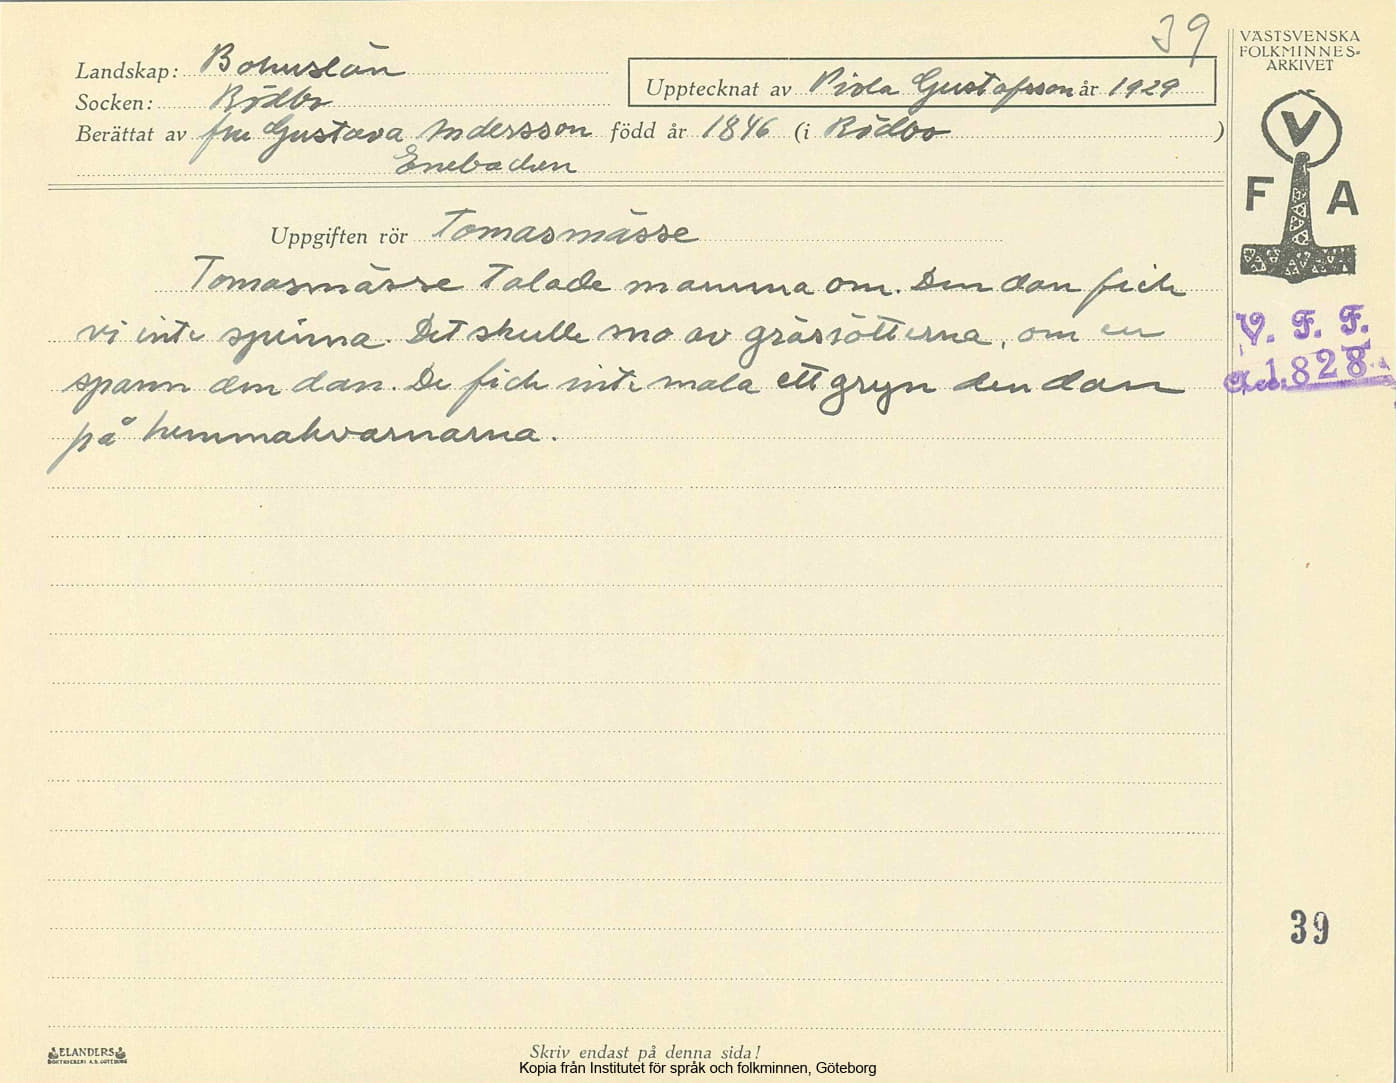 39
Landskap: Bohuslän
Socken: Rödbo
Upptecknat av Viola Gustafsson år 1929
Berättat av fru Gustava Andersson född år 1846 (i Rödbo)
Enebacken
Uppgiften rör Tomasmässe
Tomasmässe talade mamma om. Den dan fick
vi inte spinna. Det skulle sno av grisfötterna, om en
spann den dan. De fick inte mala ett gryn den dan
på hemmakvarnarna.
VÄSTSVENSKA
FOLKMINNES-
ARKIVET
V
F A
V. F. F.
Acc. 1828
39
ELANDERS
BOKTRYCKERI A.B. GÖTEBORG
Skriv endast på denna sida!
Kopia från Institutet för språk och folkminnen, Göteborg